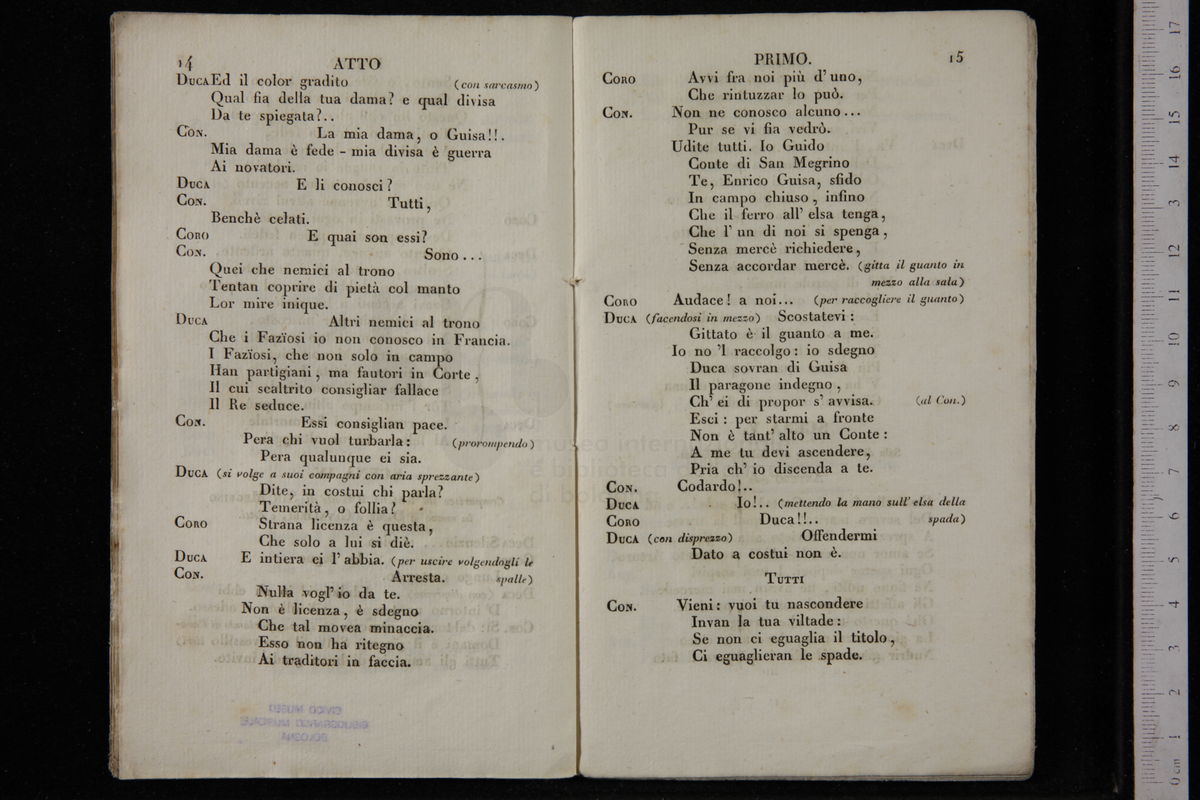 14 ATTO
DUCA Ed il color gradito (con sarcasmo)
Qual fia della tua dama? e qual divisa
Da te spiegata?..
CON. La mia dama, o Guisa!!.
Mia dama è fede - mia divisa è guerra
Ai novatori.
DUCA E li conosci?
CON. Tutti,
Benchè celati.
CORO E quai son essi?
CON. Sono...
Quei che nemici al trono
Tentan coprire di pietà col manto
Lor mire inique.
DUCA Altri nemici al trono
Che i Fazïosi io non conosco in Francia.
I Fazïosi, che non solo in campo
Han partigiani, ma fautori in Corte,
Il cui scaltrito consigliar fallace
Il Re seduce.
CON. Essi consiglian pace.
Pera chi vuol turbarla: (prorompendo)
Pera qualunque ei sia.
DUCA (si volge a suoi compagni con aria sprezzante)
Dite, in costui chi parla?
Temerità, o follia?
CORO Strana licenza è questa,
Che solo a lui si diè.
DUCA E intiera ei l'abbia. (per uscire volgendogli le
CON. Arresta. spalle)
Nulla vogl'io da te.
Non è licenza, è sdegno
Che tal movea minaccia.
Esso non ha ritegno
Ai traditori in faccia.
PRIMO. 15
CORO Avvi fra noi più d'uno,
Che rintuzzar lo può.
CON. Non ne conosco alcuno...
Pur se vi fia vedrò.
Udite tutti. Io Guido
Conte di San Megrino
Te, Enrico Guisa, sfido
In campo chiuso, infino
Che il ferro all'elsa tenga,
Che l'un di noi si spenga,
Senza mercè richiedere,
Senza accordar mercè. (gitta il guanto in
mezzo alla sala)
CORO Audace! a noi... (per raccogliere il guanto)
DUCA (facendosi in mezzo) Scostatevi:
Gittato è il guanto a me.
Io no 'l raccolgo: io sdegno
Duca sovran di Guisa
Il paragone indegno,
Ch'ei di propor s'avvisa. (al Con.)
Esci: per starmi a fronte
Non è tant'alto un Conte:
A me tu devi ascendere,
Pria ch'io discenda a te.
CON. Codardo!..
DUCA Io!.. (mettendo la mano sull'elsa della
CORO Duca!!.. spada)
DUCA (con disprezzo) Offendermi
Dato a costui non è.
TUTTI
CON. Vieni: vuoi tu nascondere
Invan la tua viltade:
Se non ci eguaglia il titolo,
Ci eguaglieran le spade.